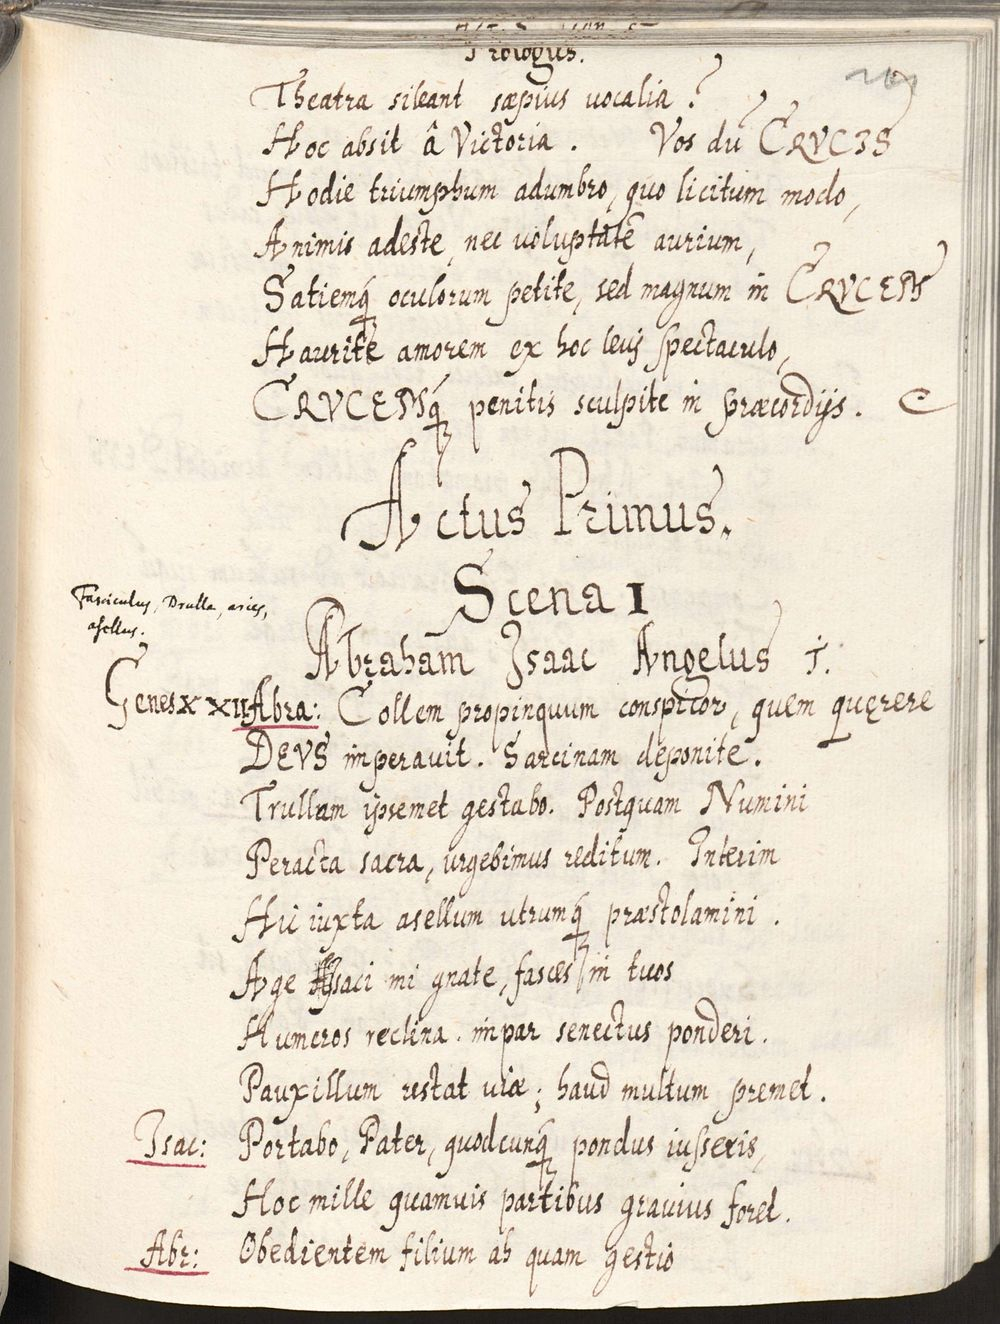 Prologus.
Theatra sileant sæpius vocalia?
Hoc absit â Victoria. Vos dũ CRVCIS
Hodie triumphum adumbro, quo licitum modo,
Animis adeste, nec voluptatẽ aurium,
Satiemq́ oculorum petite, sed magnum in CRVCEM
Haurite amorem ex hoc leui spectaculo,
CRVCEMq́ penitis sculpite in præcordijs.
Actus Primus.
Scena I
Fasciculus, Drulla, aries,
asellus.
Abraham Isaac Angelus †.
Genes XXII Abra: Collem propinquum conspicor, quem quęrere
DEVS imperauit. Sarcinam deponite.
Trullam ipsemet gestabo. Postquam Numini
Peracta sacra, urgebimus reditum. Interim
Hic iuxta asellum utrumq́ præstolamini.
Age Isaci mi gnate, fasces in tuos
Humeros reclina. impar senectus ponderi.
Pauxillum restat uiæ; haud multum premet.
Isac: Portabo, Pater, quodcunq́ pondus iusseris,
Hoc mille quamuis partibus grauius foret.
Abr: Obedientem filium ah quam gestio